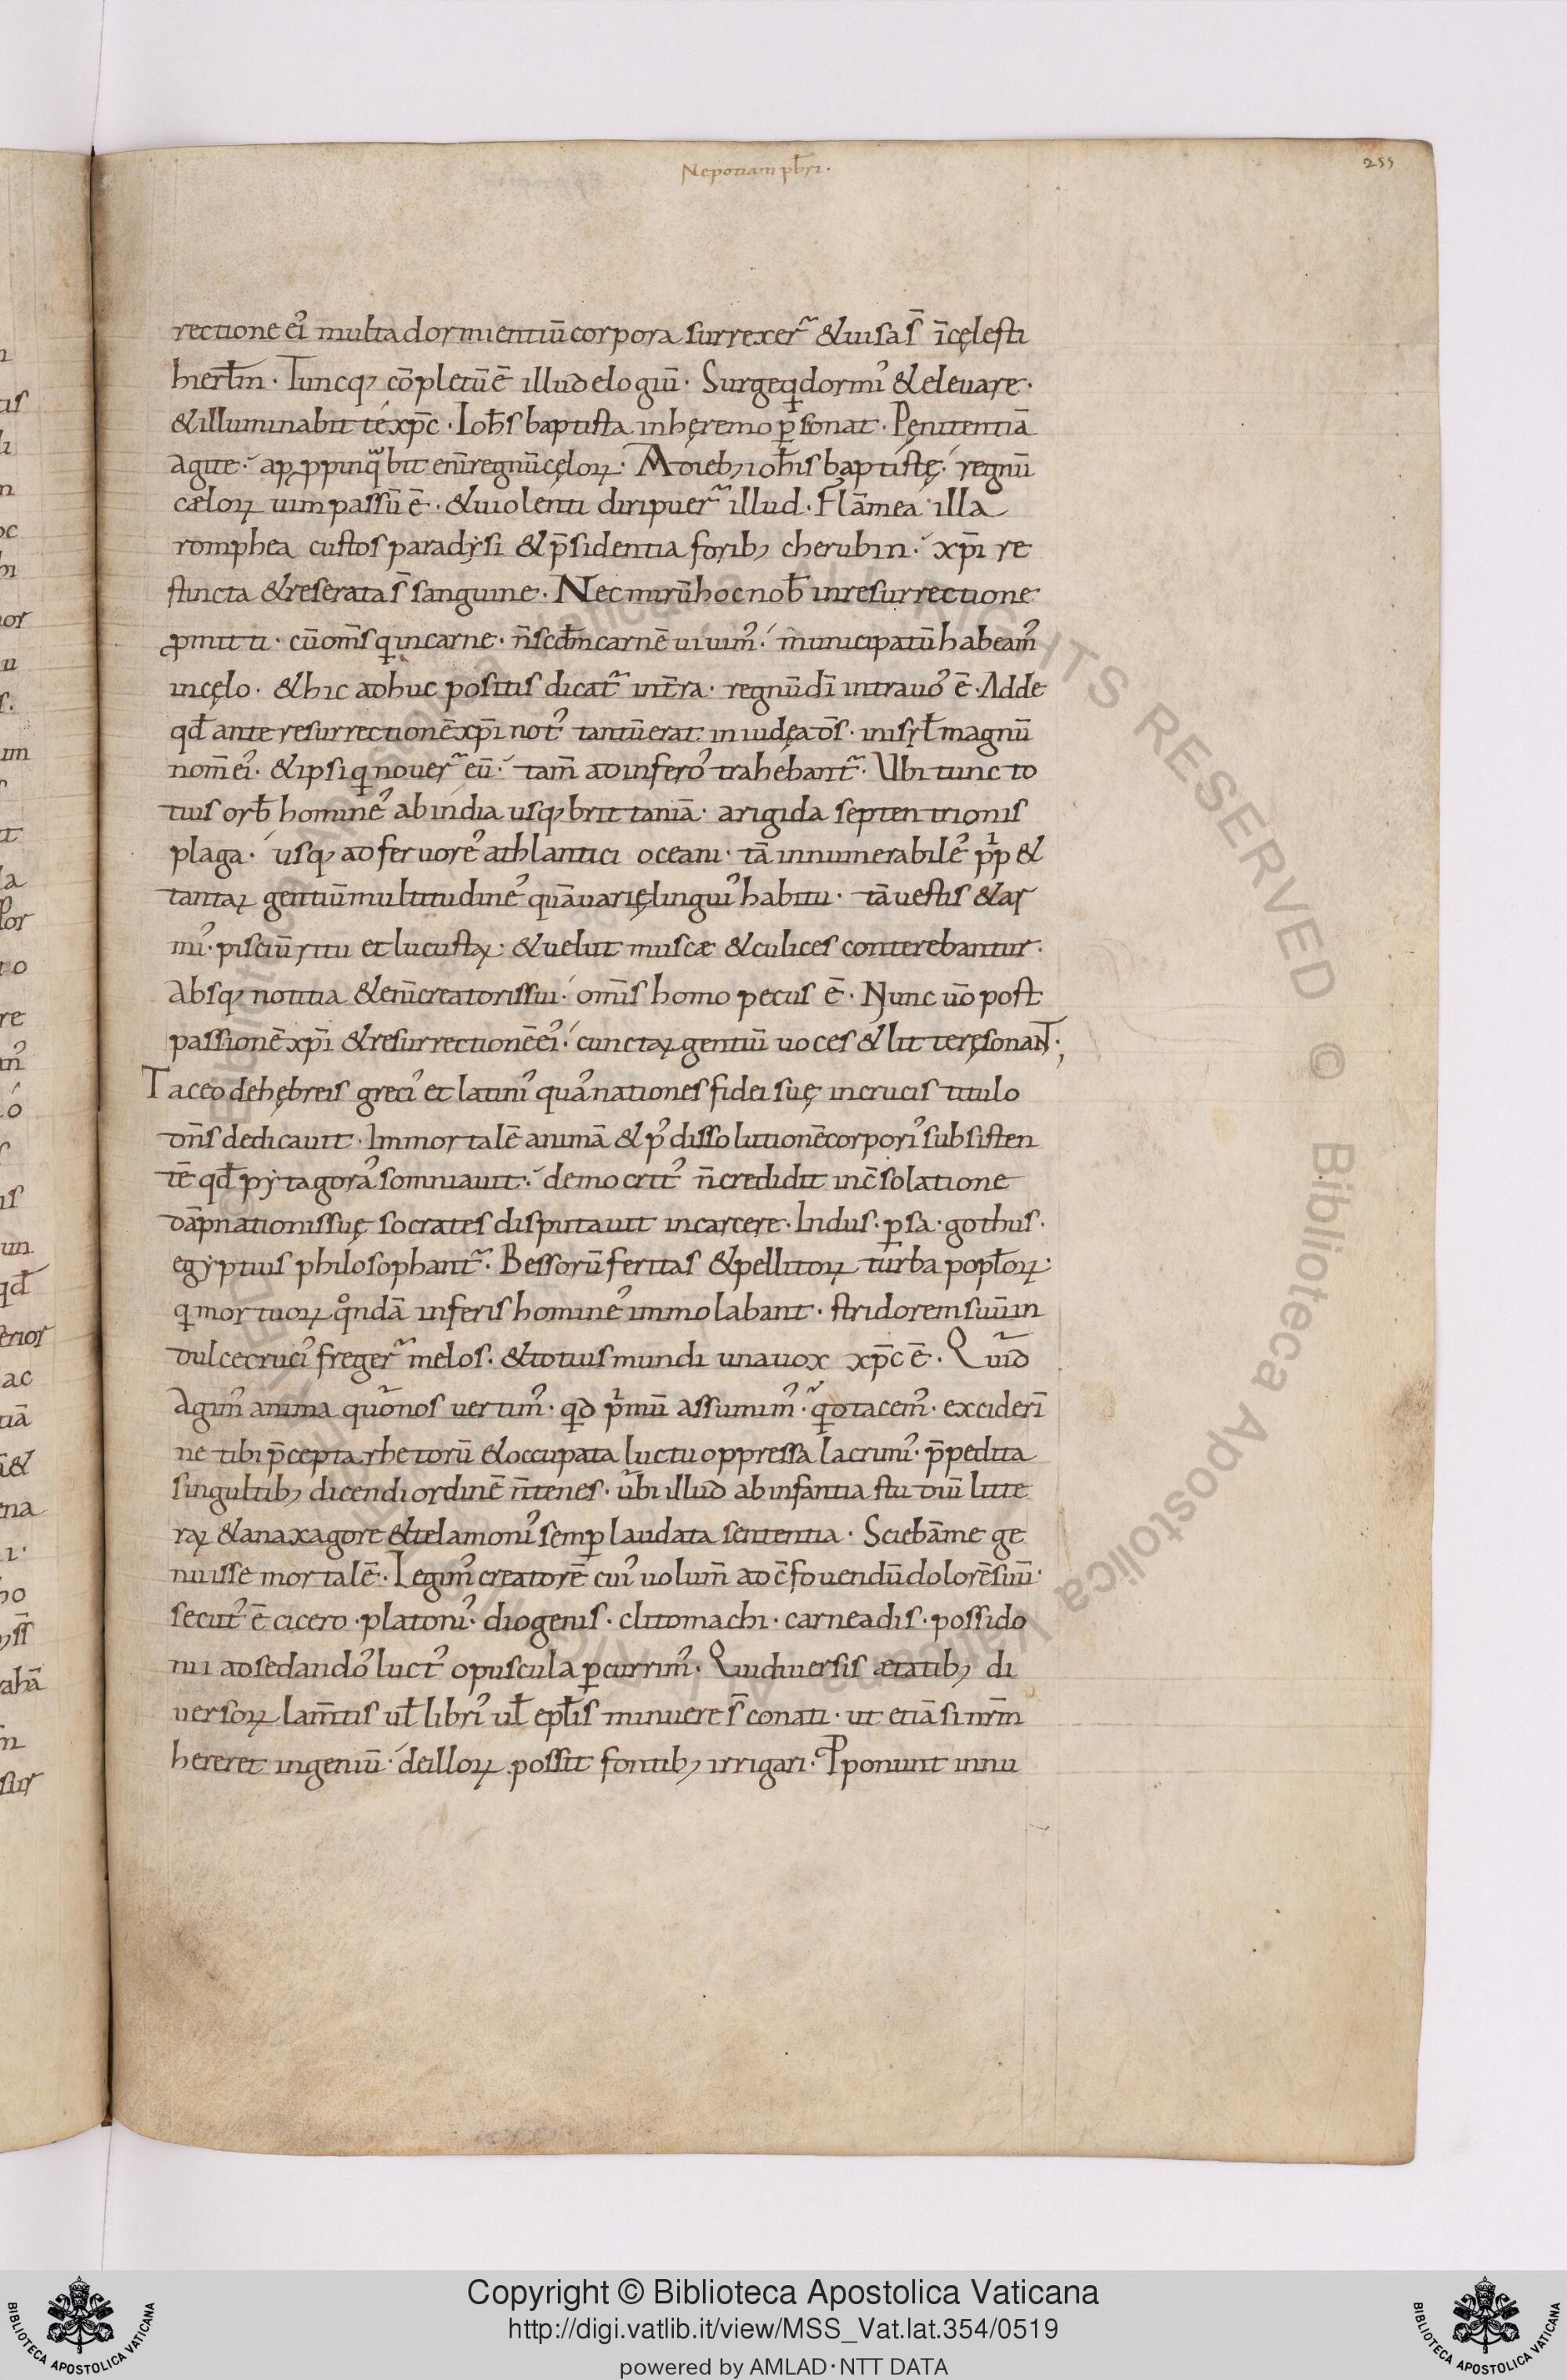 Nepotiani pb̄ri·
255
rectione ei᾽ multa dormientiū corpora surrexer̃ & uisa s̄ ī cęlesti
hierłm̄· Tuncq; cōpletū ē illud elogiū· Surge q̣ dormi᾽ & eleuare·
& illuminabit te xp̄c· Ioh̄s baptista in hęremo ꝑsonat· Pęnitentiā
agite· apꝓpinq̃bit eni̅ regnū cęloꝝ· A dieb; ioh̄is baptistę· regnū
cæloꝝ uim passū ē· & uiolenti diripuer̃ illud· Flāmea illa
romphea custos paradẏsi & p̄sidentia forib; cherubin· xp̄i re
stincta & reserata s̄ sanguine· Nec mirū hoc nob̄ in resurrectione
ꝓmitti· cū om̄s qui in carne· n̄ scd̄m carnē uiuim᾽· municipatū habeam᾽
in cęlo· & hic adhuc positis dicat̃ int̄ra· regnū dī intra uo᾽ ē· Adde
qd̄ ante resurrectionē xp̄i not᾽ tantū erat in iudęa d̄s· in isrł magnū
nom̄ ei᾽· & ipsi qui nouer̃ eū· tam̄ ad infero᾽ trahebant̃· Ubi tunc to
tius orb̄ homine᾽ ab india usq; brittaniā· a rigida septentrionis
plaga· usq; ad feruore᾽ athlantici oceani· tā innumerabile᾽ pr̍p &
tantaꝝ gentiū multitudine᾽ quā uarię lingui᾽ habitu· tā uestis & ar
mi᾽· pisciū ritu et lucustaꝝ· & uelut muscæ & culices conterebantur·
Absq; notitia & eni̅ creatoris sui· om̄is homo pecus ē· Nunc uō post
passionē xp̄i & resurrectionē ei᾽· cunctaꝝ gentiū uoces & litterę sonant·;
Taceo de hębreis greci᾽ et latini᾽ qua᾽ nationes fidei suę in crucis titulo
dn̄s dedicauit· Immortalē animā & p᾽ dissolutionē corpori᾽ subsisten
tē qd̄ pẏtagora᾽ somniauit· democrit᾽ n̄ credidit in c̄solatione
dāpnationis suę socrates disputauit in carcere· Indus· ꝑsa· gothus·
egẏptius philosophant̃· Bessorū feritas & pellitoꝝ turba popłoꝝ·
qui mortuoꝝ qͦndā inferis homine᾽ immolabant· stridorem suū in
dulce cruci᾽ freger̃ melos· & totius mundi una uox xp̄c ē· Quid
agim᾽ anima quo nos uertim᾽· quid pͥmū assumim᾽· quid tacem᾽· exciderī
ne tibi p̄cepta rhetorū & occupata luctu oppressa lacrimi᾽· p̄pedita
singultib; dicendi ordinē n̄ tenes· ubi illud ab infantia studiū litte
raꝝ & anaxagore & telamoni᾽ semꝑ laudata sententia· Sciebā me ge
nuisse mortalē· Legim᾽ creatorē cui᾽ uolum̄ ad c̄fouendū dolorē suū·
secut᾽ ē cicero· platoni᾽· diogenis· clitomachi· carneadis· possido
nii ad sedando᾽ luct᾽ opuscula ꝑcurrim᾽· Qui diuersis ætatib; di
uersoꝝ lam̄tis uł libri᾽ uł epłis minuere s̄ conati· ut etiā si nr̄m
hereret ingeniū· de illoꝝ possit fontib; irrigari· Ꝓponunt innu
Copyright © Biblioteca Apostolica Vaticana
http://digi.vatlib.it/view/MSS_Vat.lat.354/0519
powered by AMLAD·NTT DATA